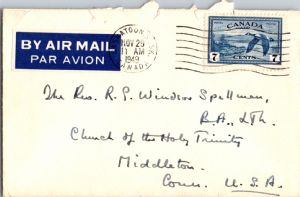 BY AIR MAIL
PAR AVION
NOV 29
11 AM
1949
CANADA
7 CENTS 7
The Rev. R. G. Windsor Spellman,
B.A., L.Th.
Church of the Holy Trinity
Middleton.
Conn. U.S.A.